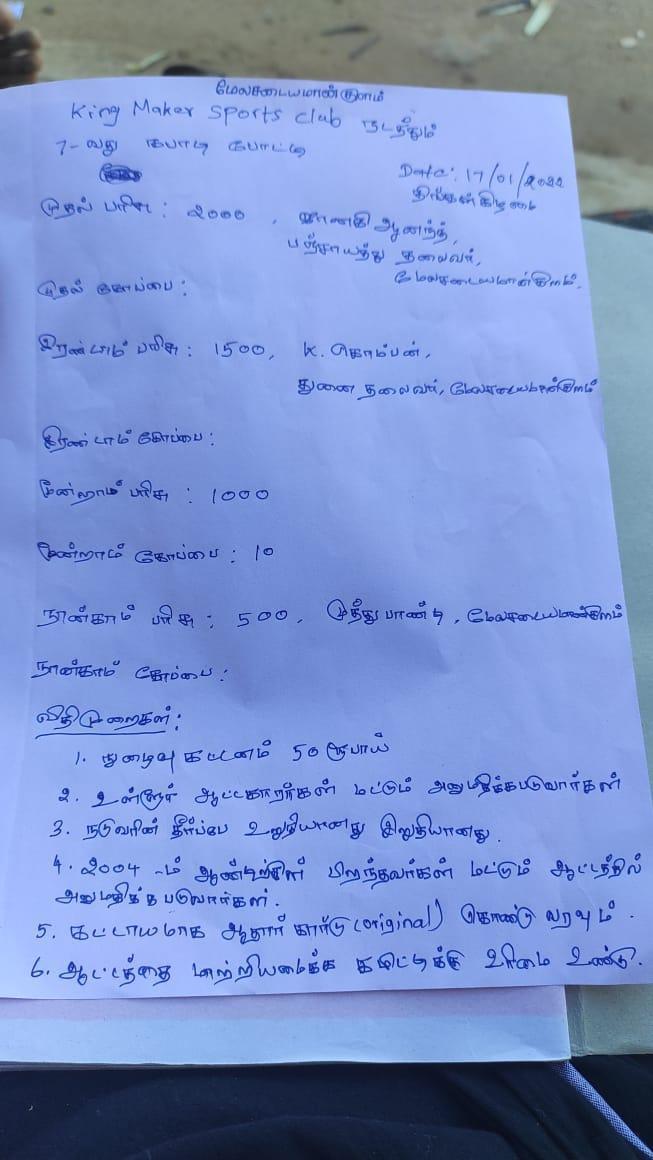 மேலசடையமான்குளம்
King Maker Sports Club நடத்தும்
7-வது கபாடி போட்டி
Date: 17/01/2022
திங்கள்கிழமை
முதல் பரிசு : 2000 , ஜானகி ஆனந்த்,
பஞ்சாயத்து தலைவர்,
மேலசடையமான்குளம்.
முதல் கோப்பை :
இரண்டாம் பரிசு : 1500, K. கொம்பன்,
துணை தலைவர், மேலசடையமான்குளம்
இரண்டாம் கோப்பை :
மூன்றாம் பரிசு : 1000
மூன்றாம் கோப்பை : 10
நான்காம் பரிசு : 500, முத்துபாண்டி, மேலசடையமான்குளம்
நான்காம் கோப்பை :
விதிமுறைகள் :
1. நுழைவு கட்டனம் 50 ரூபாய்
2. உள்ளூர் ஆட்டகாரர்கள் மட்டும் அனுமதிக்கபடுவார்கள்
3. நடுவரின் தீர்ப்பே உறுதியானது இறுதியானது.
4. 2004 -ம் ஆண்டிற்குள் பிறந்தவர்கள் மட்டும் ஆட்டத்தில்
அனுமதிக்கபடுவார்கள்.
5. கட்டாயமாக ஆதார் கார்டு (original) கொண்டு வரவும் .
6. ஆட்டத்தை மாற்றியமைக்க கமிட்டிக்கு உரிமை உண்டு.